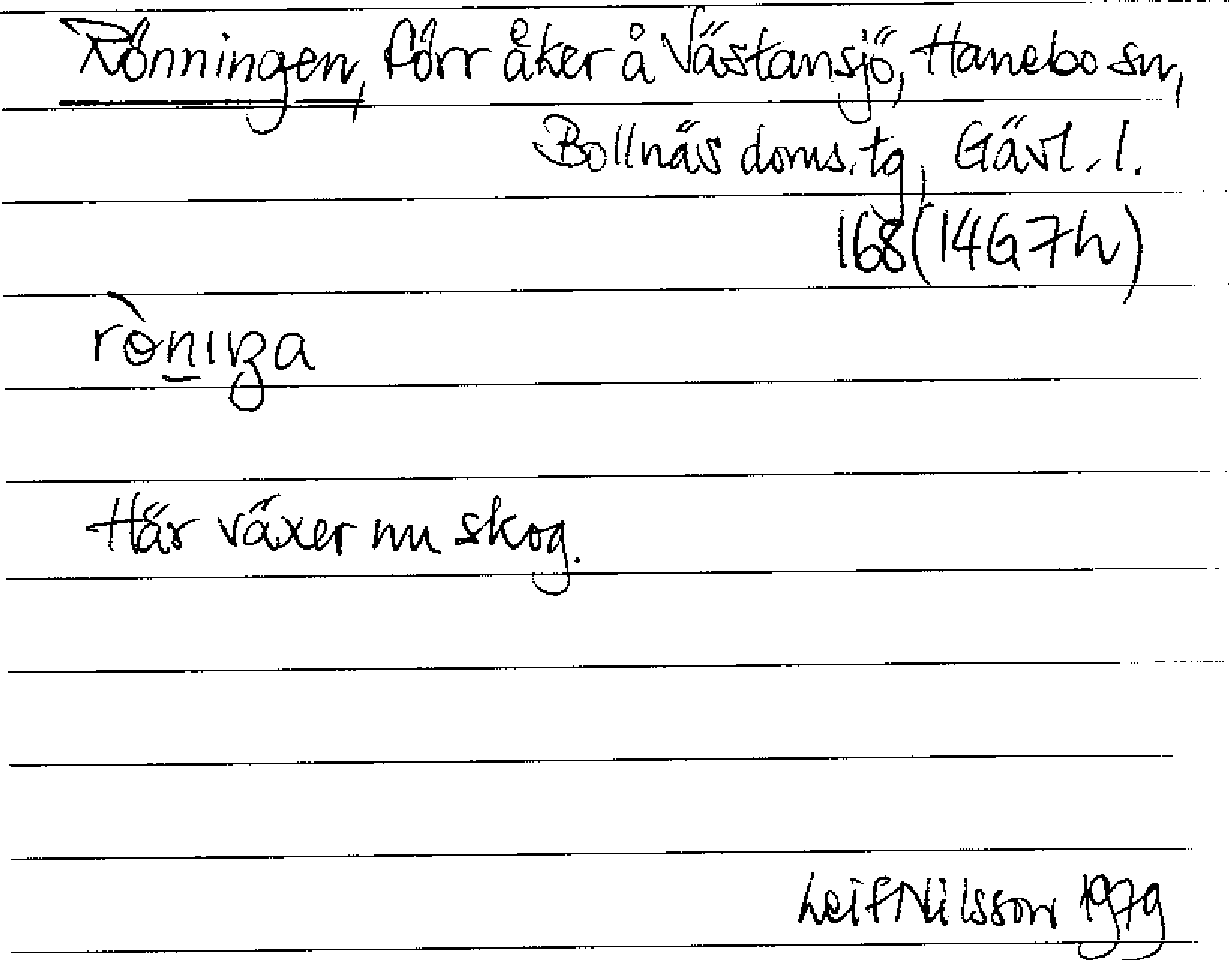 Rönningen, förr åker å Västansjö, Hanebo sn,
Bollnäs doms. tg, Gävl. l.
168 (14G7h)
Här växer nu skog.
Leif Nilsson 1979